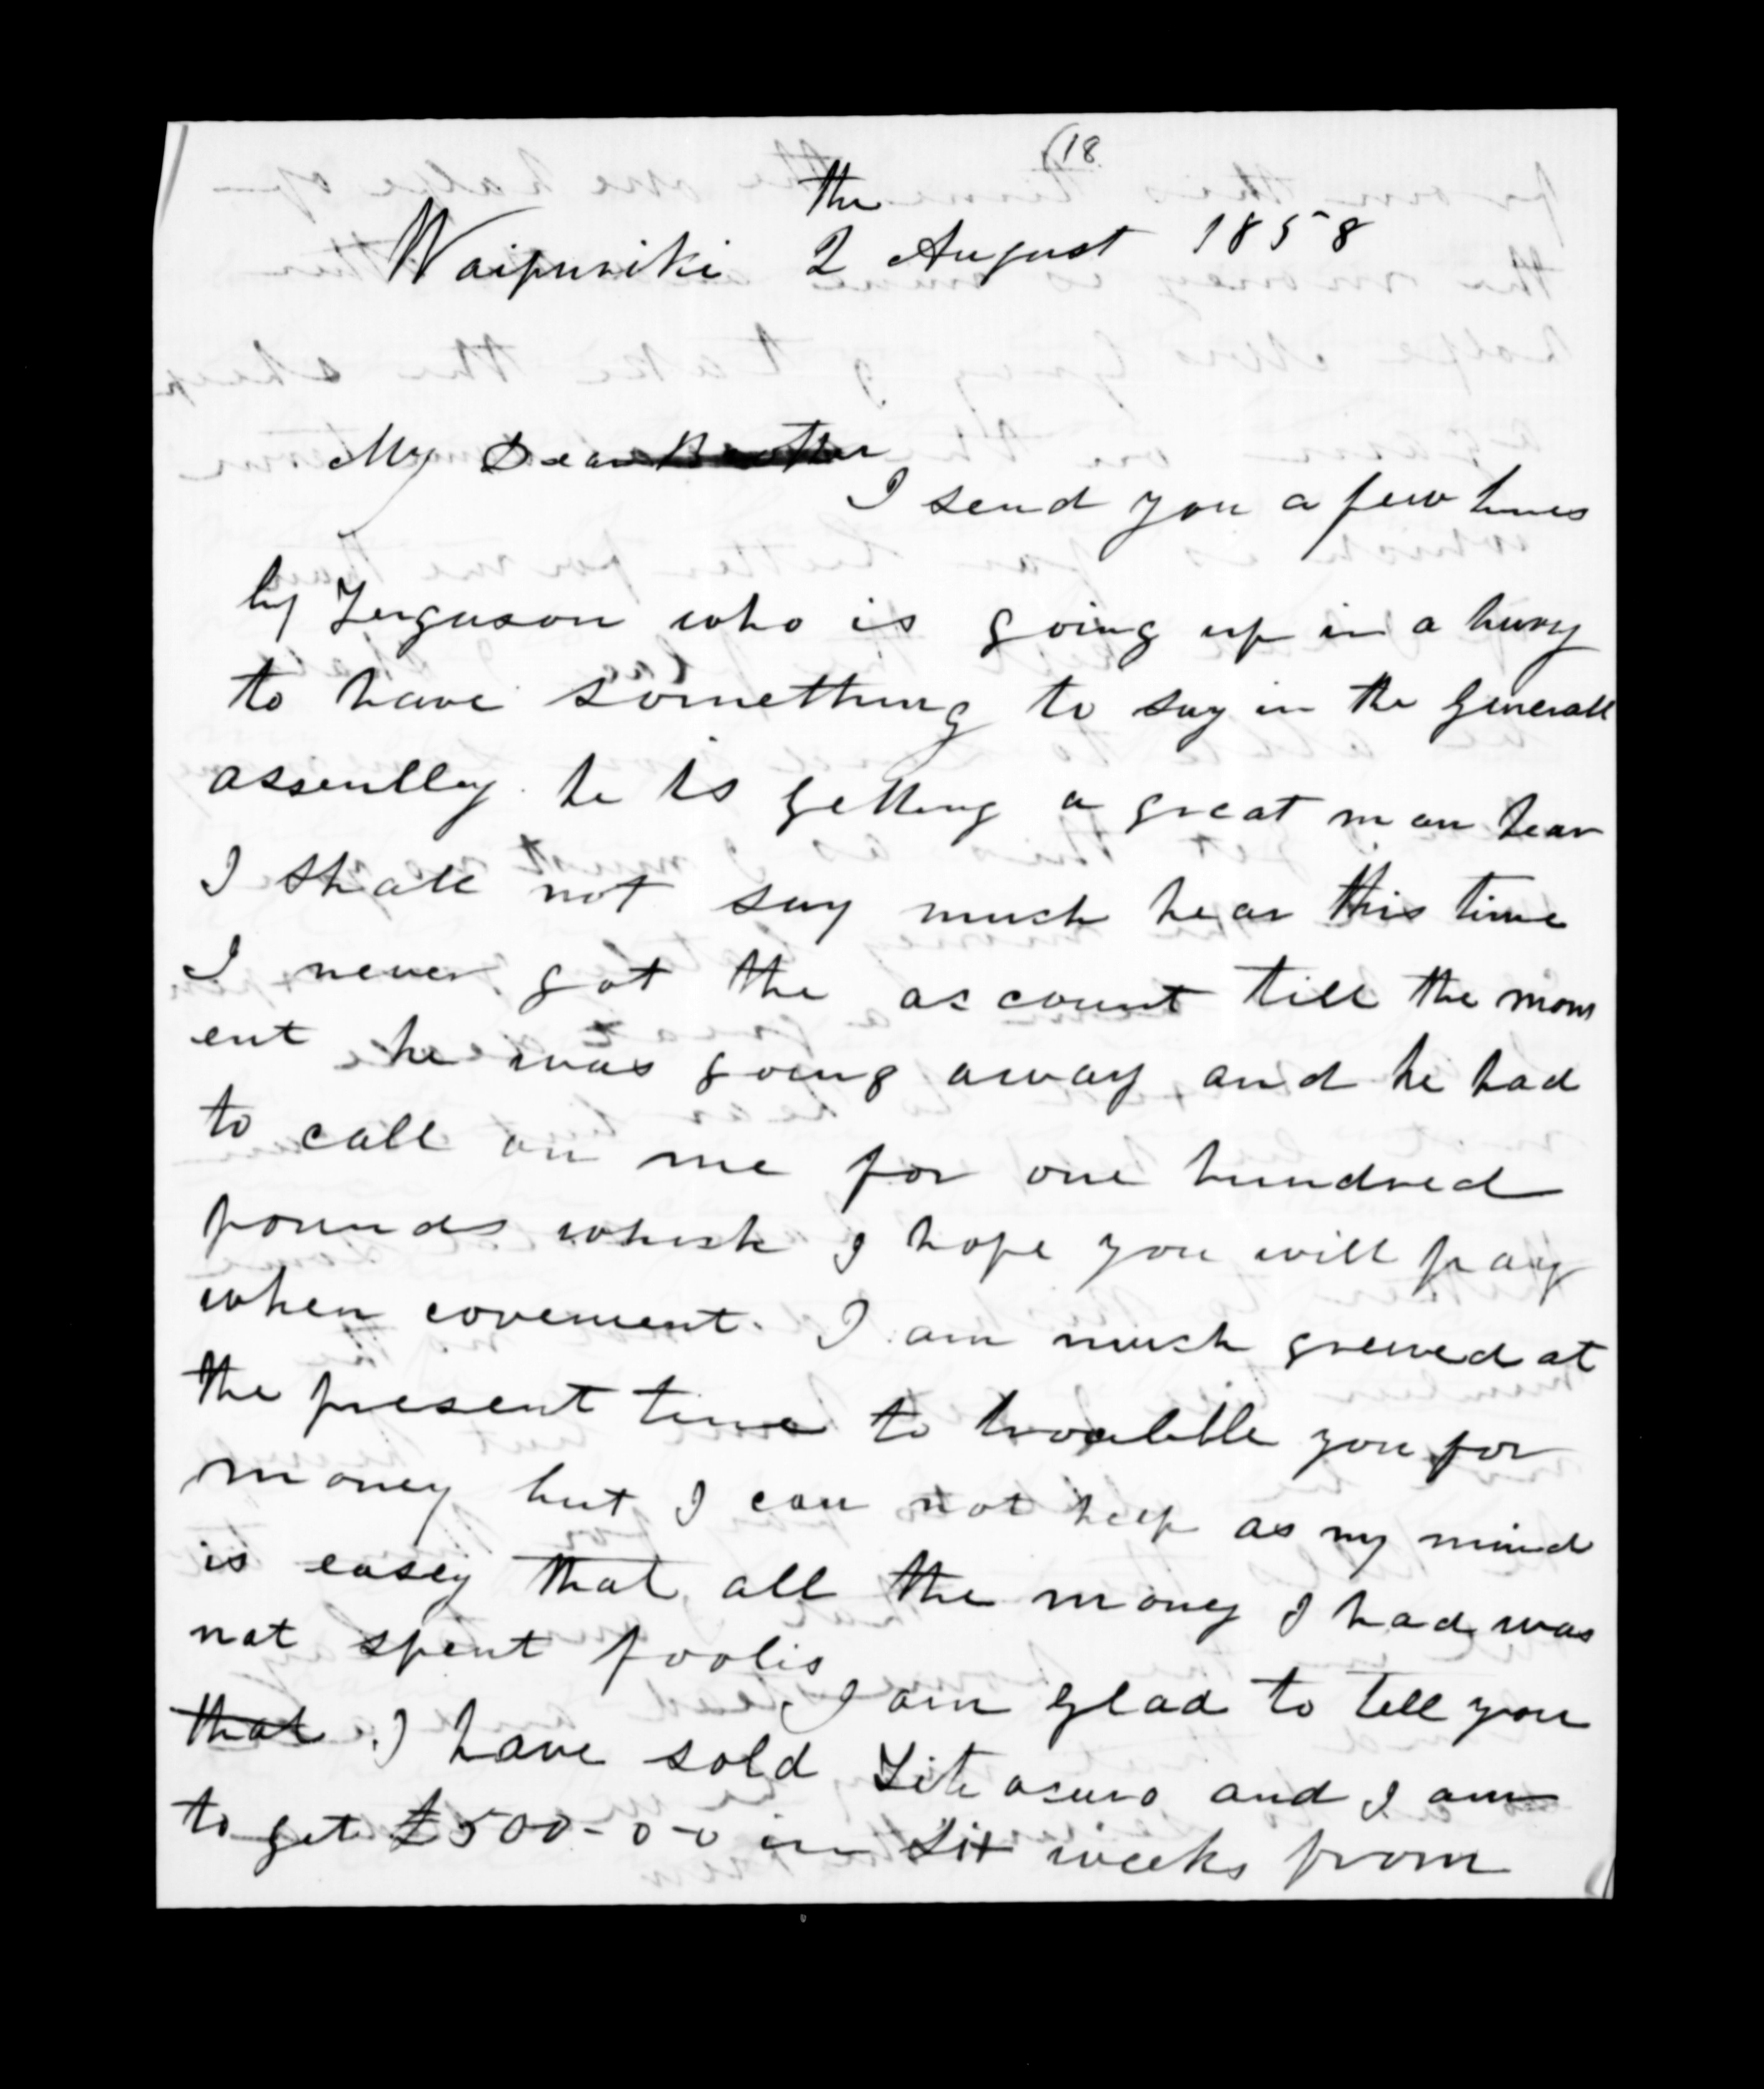 (18
the
Waipuriki 2 August 1858
My Dear Brother
I send you a few lines
by Ferguson who is going up in a hury
to have something to say in the Generall
assembly. he is getting a great man hear
I shall not say much hear this time
I never got the account till the mom
ent he was going away and he had
to call on me for one hundred
pounds which I hope you will pay
when covenient. I am much greived at
the present time to trouble you for
money but I can not help as my mind
is easey that all the money I had was
not spent foolis I am glad to tell you
that I have sold and I am
to get £500-0-0 in Six weeks from